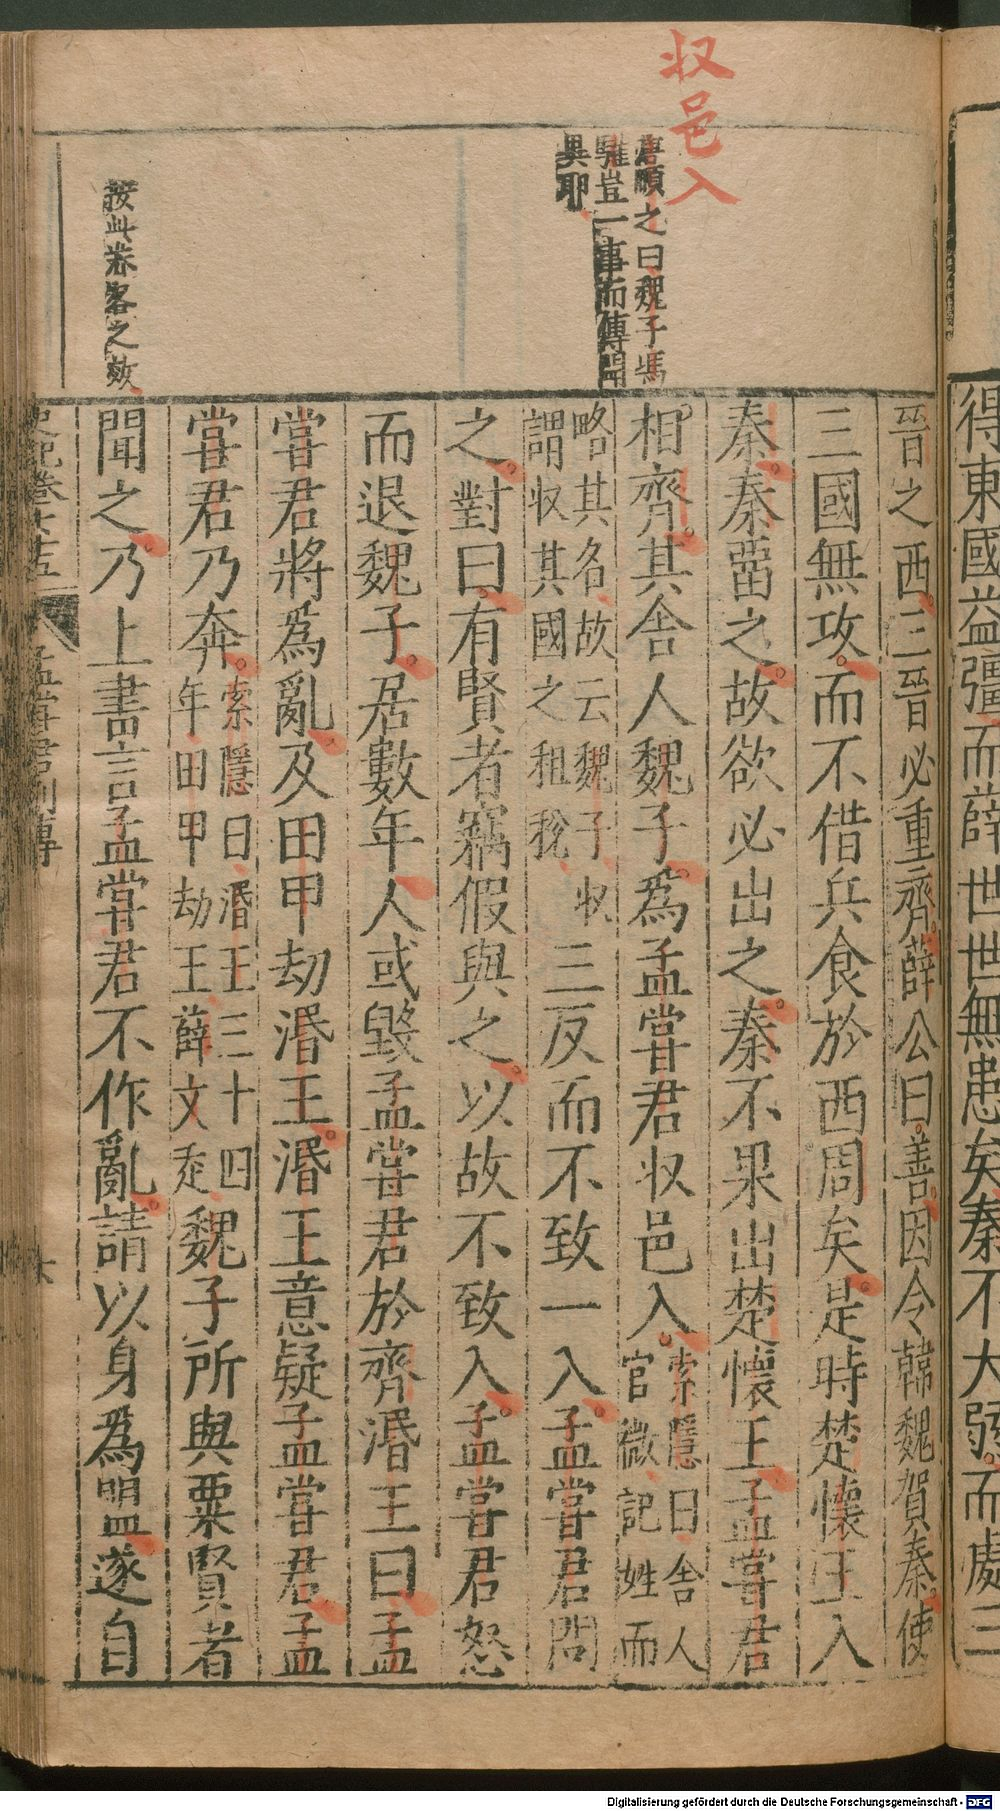 得東國益彊而薛世世無患矣秦不大弱而處三
収邑入
唐順之曰魏子馮
驩豈一事而傳聞
異耶
按此養客之效
晉之西三晉必重齊薛公曰善因令韓魏賀秦使
三國無攻而不借兵食於西周矣是時楚懷王入
秦秦畱之故欲必出之秦不果出楚懷王孟嘗君
相齊其舎人魏子爲孟嘗君収邑入
索隱曰舎人
官微記姓而
略其名故云魏子収
謂収其國之租稅
三反而不致一入孟嘗君問
之對曰有賢者竊假與之以故不致入孟嘗君怒
而退魏子居數年人或毀孟嘗君於齊湣王曰孟
嘗君將爲亂及田甲劫湣王湣王意疑孟嘗君孟
嘗君乃奔
索隱曰湣王三十四
年田甲劫王薛文走
魏子所與粟賢者
聞之乃上書言孟嘗君不作亂請以身爲盟遂自
史記卷七十五
孟嘗君列傳
六
Digitalisierung gefördert durch die Deutsche Forschungsgemeinschaft - DFG